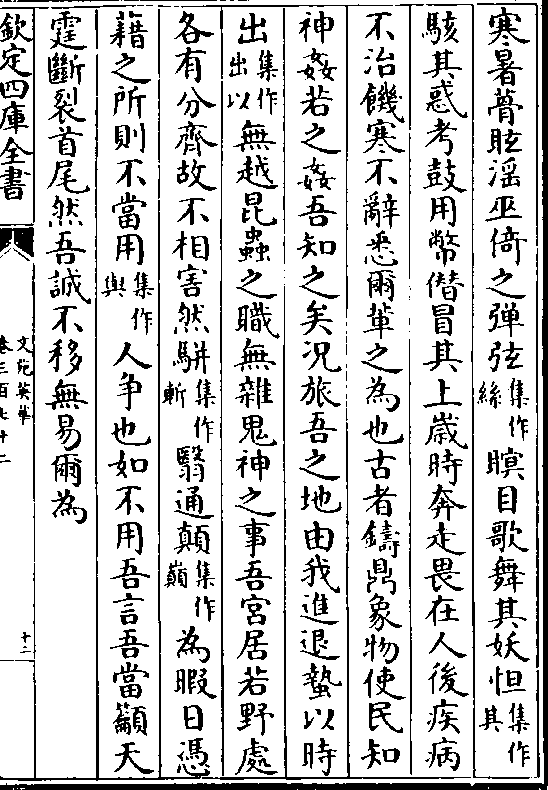 寒暑瞢眩滛巫倚之弹弦集作絲瞑目歌舞其妖怛集作其
駭其惑考鼓用幣僣冒其上歳時奔走畏在人後疾病
不治饑寒不辭悉爾軰之為也古者鑄鼎象物使民知
神姦若之姦吾知之矣况旅吾之地由我進退蟄以時
出集作出以無越昆蟲之職無雜鬼神之事吾宫居若野處
各有分齊故不相害然騈集作斬翳通顛集作巔為暇日憑
藉之所則不當用集作與人争也如不用吾言吾當籲天
霆斷裂首尾然吾誠不移無易爾為
欽定四庫全書
文苑英華
卷三百七十二
十二